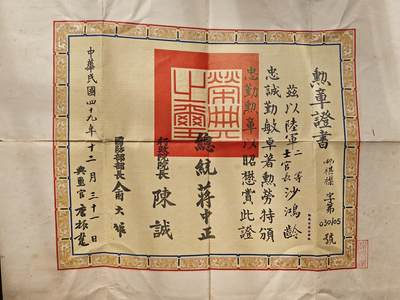 勳章證書
字第030105號
茲以陸軍二等士官長沙鴻齡
忠誠勤敏卓著勳勞特頒
忠勤勳章以昭懋賞此證
總統 蔣中正
行政院院長 陳誠
國防部部長 俞大維
典璽官
中華民國四十九年十二月三十一日
榮典之璽